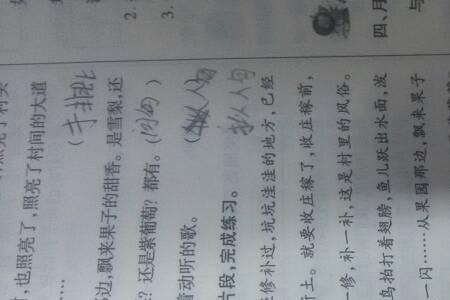 照亮了村头
，也照亮了，照亮了村间的大道
……
（排比
边，飘来果子的甜香。是雪梨，还
？还是紫葡萄？都有。（问句）
着动听的歌。（人句
片段，完成练习。
人句
修补过，坑坑洼洼的地方，已经
土。就要收庄稼了，收庄稼前，
修，补一补，这是村里的风俗。
鸟拍打着翅膀，鱼儿跃出水面，波
一闪……从果园那边，飘来果子
2.
3.
四、月
与